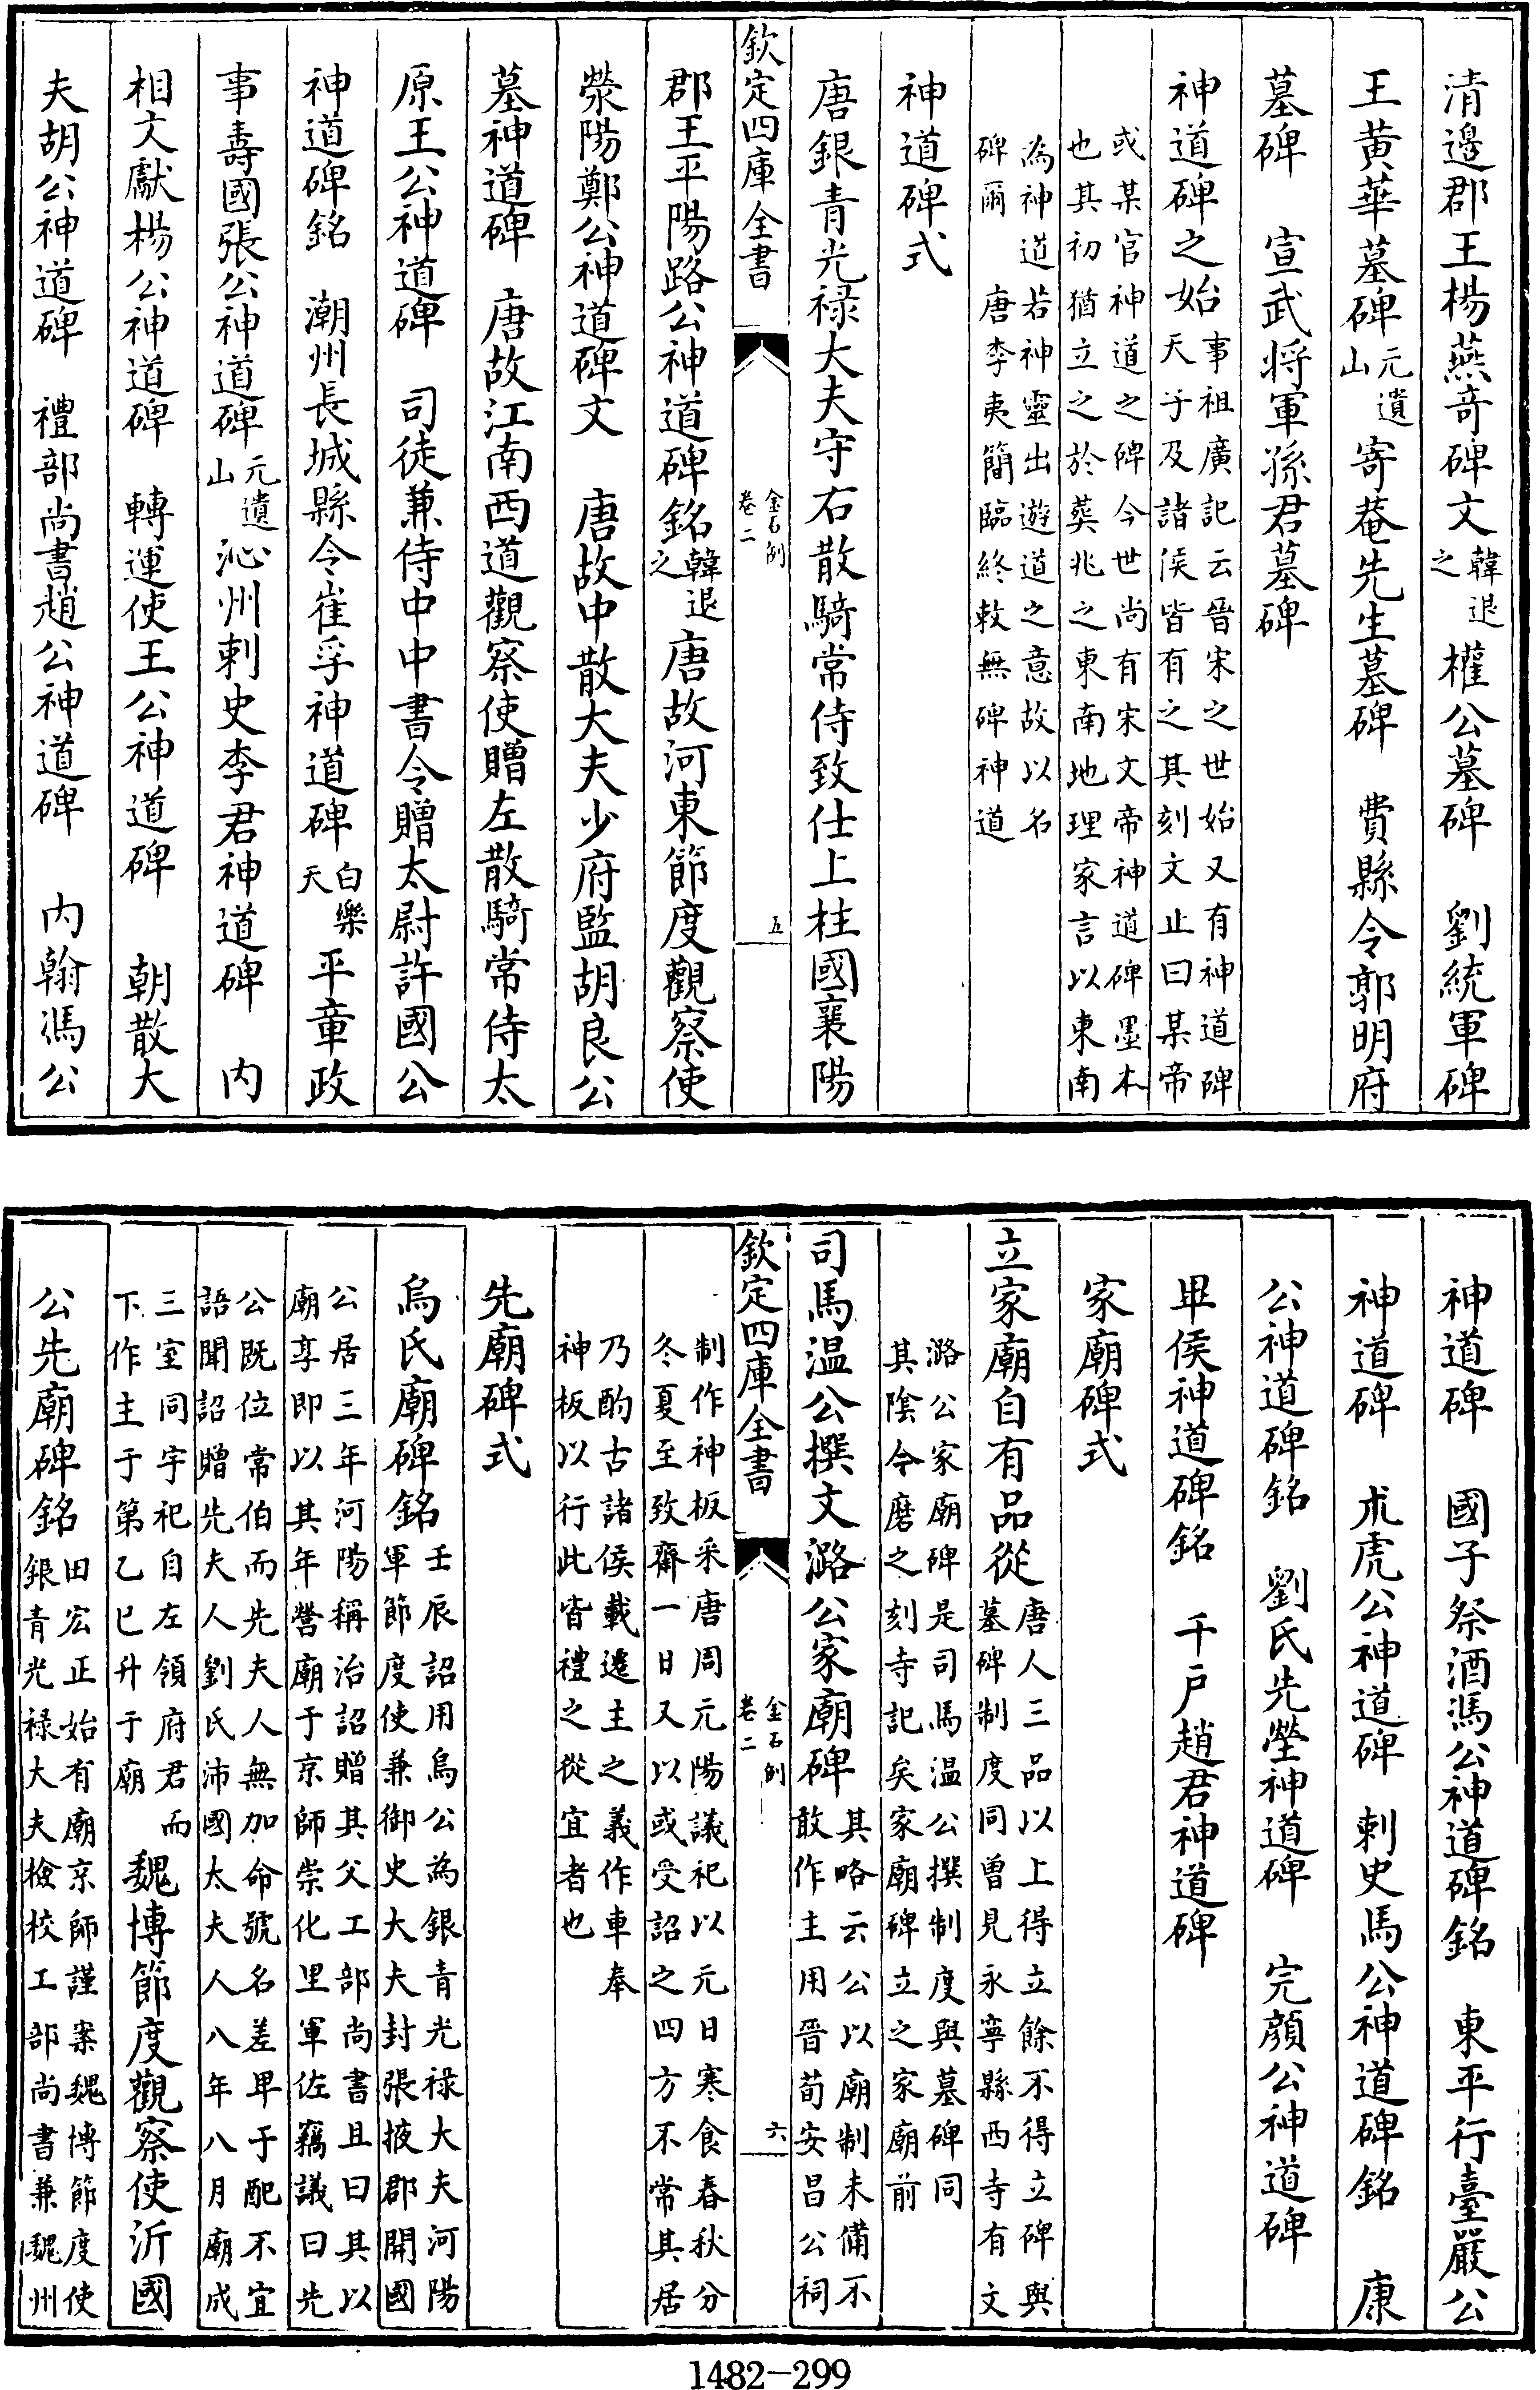 清邊郡王楊燕竒碑文韓退之權公墓碑　劉統軍碑
王黃華墓碑元遺山寄菴先生墓碑　費縣令郭明府
墓碑　宣武將軍孫君墓碑
神道碑之始事祖廣記云晉宋之世始又有神道碑天子及諸侯皆有之其刻文止曰某帝
或某官神道之碑今世尚有宋文帝神道碑墨本也其初猶立之於葬兆之東南地理家言以東南
為神道若神靈出遊道之意故以名碑爾　唐李夷簡臨終敕無碑神道
神道碑式
唐銀青光祿大夫守右散騎常侍致仕上柱國襄陽
欽定四庫全書　金石例卷二　五
郡王平陽路公神道碑銘韓退之唐故河東節度觀察使
滎陽鄭公神道碑文　唐故中散大夫少府監胡良公
墓神道碑　唐故江南西道觀察使贈左散騎常侍太
原王公神道碑　司徒兼侍中中書令贈太尉許國公
神道碑銘　潮州長城縣令崔孚神道碑白樂天　平章政
事壽國張公神道碑元遺山沁州刺史李君神道碑　內
相文獻楊公神道碑　轉運使王公神道碑　朝散大
夫胡公神道碑　禮部尚書趙公神道碑　內翰馮公
神道碑　國子祭酒馮公神道碑銘　東平行臺嚴公
神道碑　朮虎公神道碑　刺史馬公神道碑銘　康
公神道碑銘　劉氏先塋神道碑　完顏公神道碑
畢侯神道碑銘　千戶趙君神道碑
家廟碑式
立家廟自有品從唐人三品以上得立餘不得立碑與墓碑制度同曾見永寧縣西寺有文
潞公家廟碑是司馬温公撰制度與墓碑同其陰今磨之刻寺記矣家廟碑立之家廟前
司馬温公撰文潞公家廟碑其略云公以廟制未備不敢作主用晉荀安昌公祠
欽定四庫全書　金石例卷二　六
制作神板采唐周元陽議祀以元日寒食春秋分冬夏至致齋一日又以或受詔之四方不常其居
乃酌古諸侯載遷主之義作車奉神板以行此皆禮之從宜者也
先廟碑式
烏氏廟碑銘壬辰詔用烏公為銀青光祿大夫河陽軍節度使兼御史大夫封張掖郡開國
公居三年河陽稱治詔贈其父工部尚書且曰其以廟享即以其年營廟于京師崇化里軍佐竊議曰先
公既位常伯而先夫人無加命號名差卑于配不宜語聞詔贈先夫人劉氏沛國太夫人八年八月廟成
三室同宇祀自左領府君而下作主于第乙巳升于廟　魏博節度觀察使沂國
公先廟碑銘田宏正始有廟京師謹案魏博節度使銀青光祿大夫檢校工部尚書兼魏州
1482-299